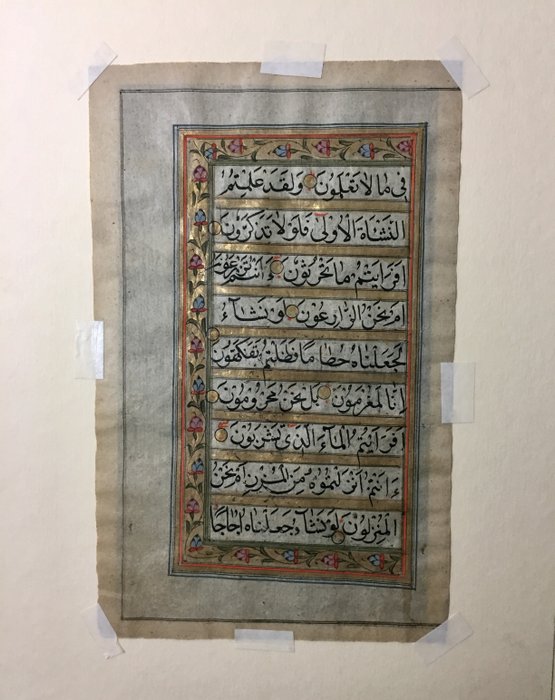 فِى مَا لَا تَعْلَمُونَ وَلَقَدْ عَلِمْتُمُ
النَّشْاَةَ الْاُولٰى فَلَوْلَا تَذَكَّرُونَ
اَفَرَاَيْتُمْ مَا تَحْرُثُونَ ءَاَنْتُمْ تَزْرَعُونَهُ
اَمْ نَحْنُ الزَّارِعُونَ لَوْ نَشَآءُ
لَجَعَلْنَاهُ حُطَامًا فَظَلْتُمْ تَفَكَّهُونَ
اِنَّا لَمُغْرَمُونَ بَلْ نَحْنُ مَحْرُومُونَ
اَفَرَاَيْتُمُ الْمَآءَ الَّذِى تَشْرَبُونَ
ءَاَنْتُمْ اَنْزَلْتُمُوهُ مِنَ الْمُزْنِ اَمْ نَحْنُ
الْمُنْزِلُونَ لَوْ نَشَآءُ جَعَلْنَاهُ اُجَاجًا